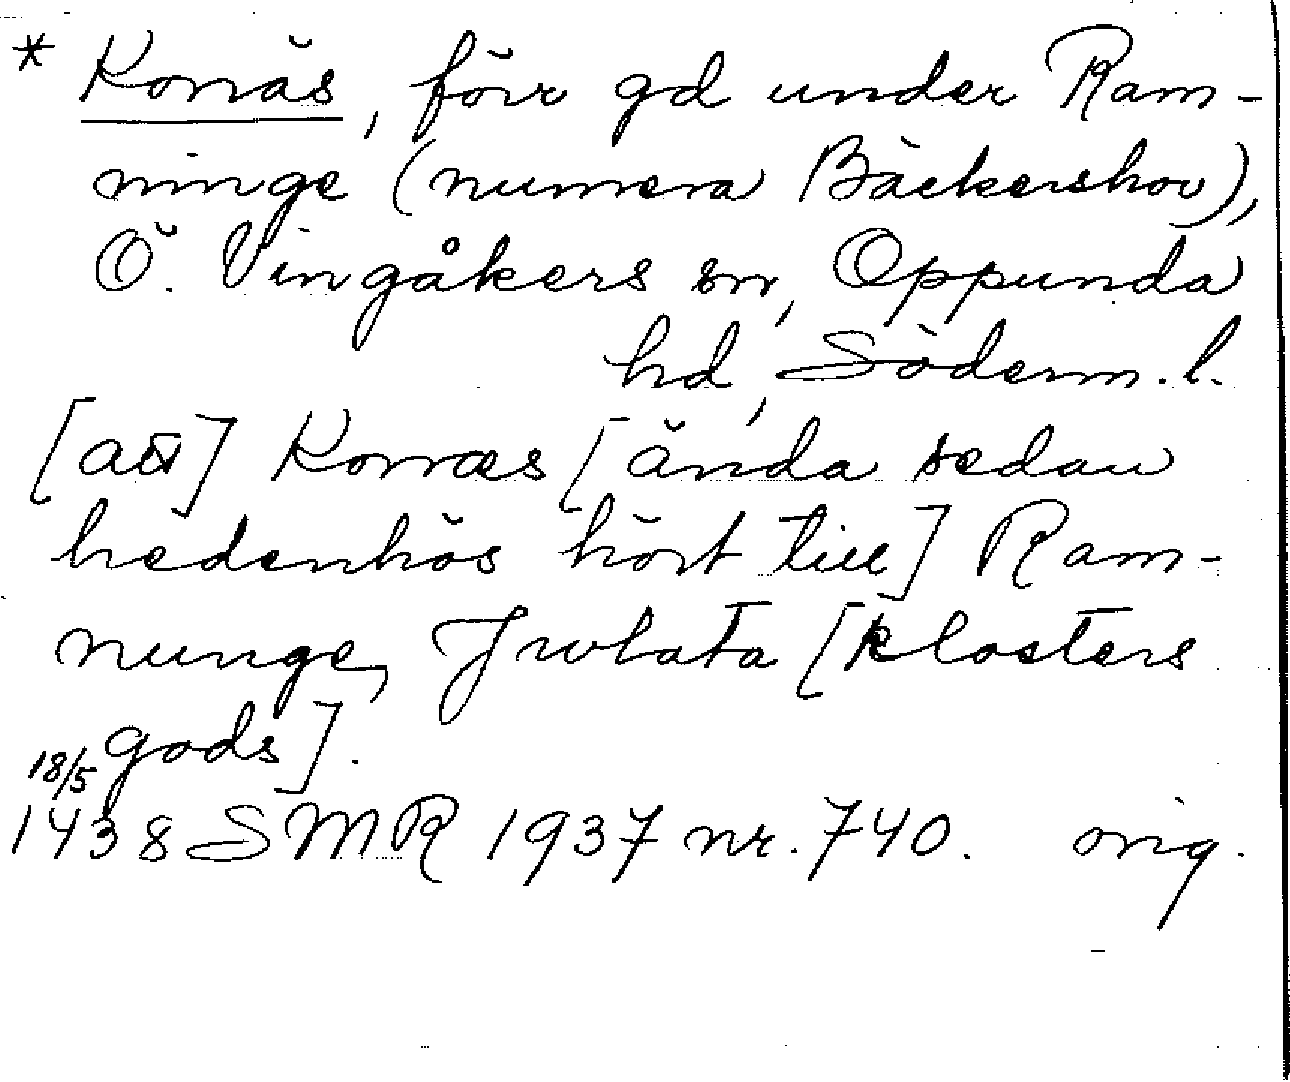 * Korräs, förr gd under Ram-
ninge (numera Bäckershov),
Ö. Vingåkers sn, Oppunda
hd, Söderm.l.
[att] Korræs [ända sedan
hedenhös hört till] Ram-
nunge, Jwlata [klosters
gods].
18/5
1438 SMR 1937 nr. 740. orig.